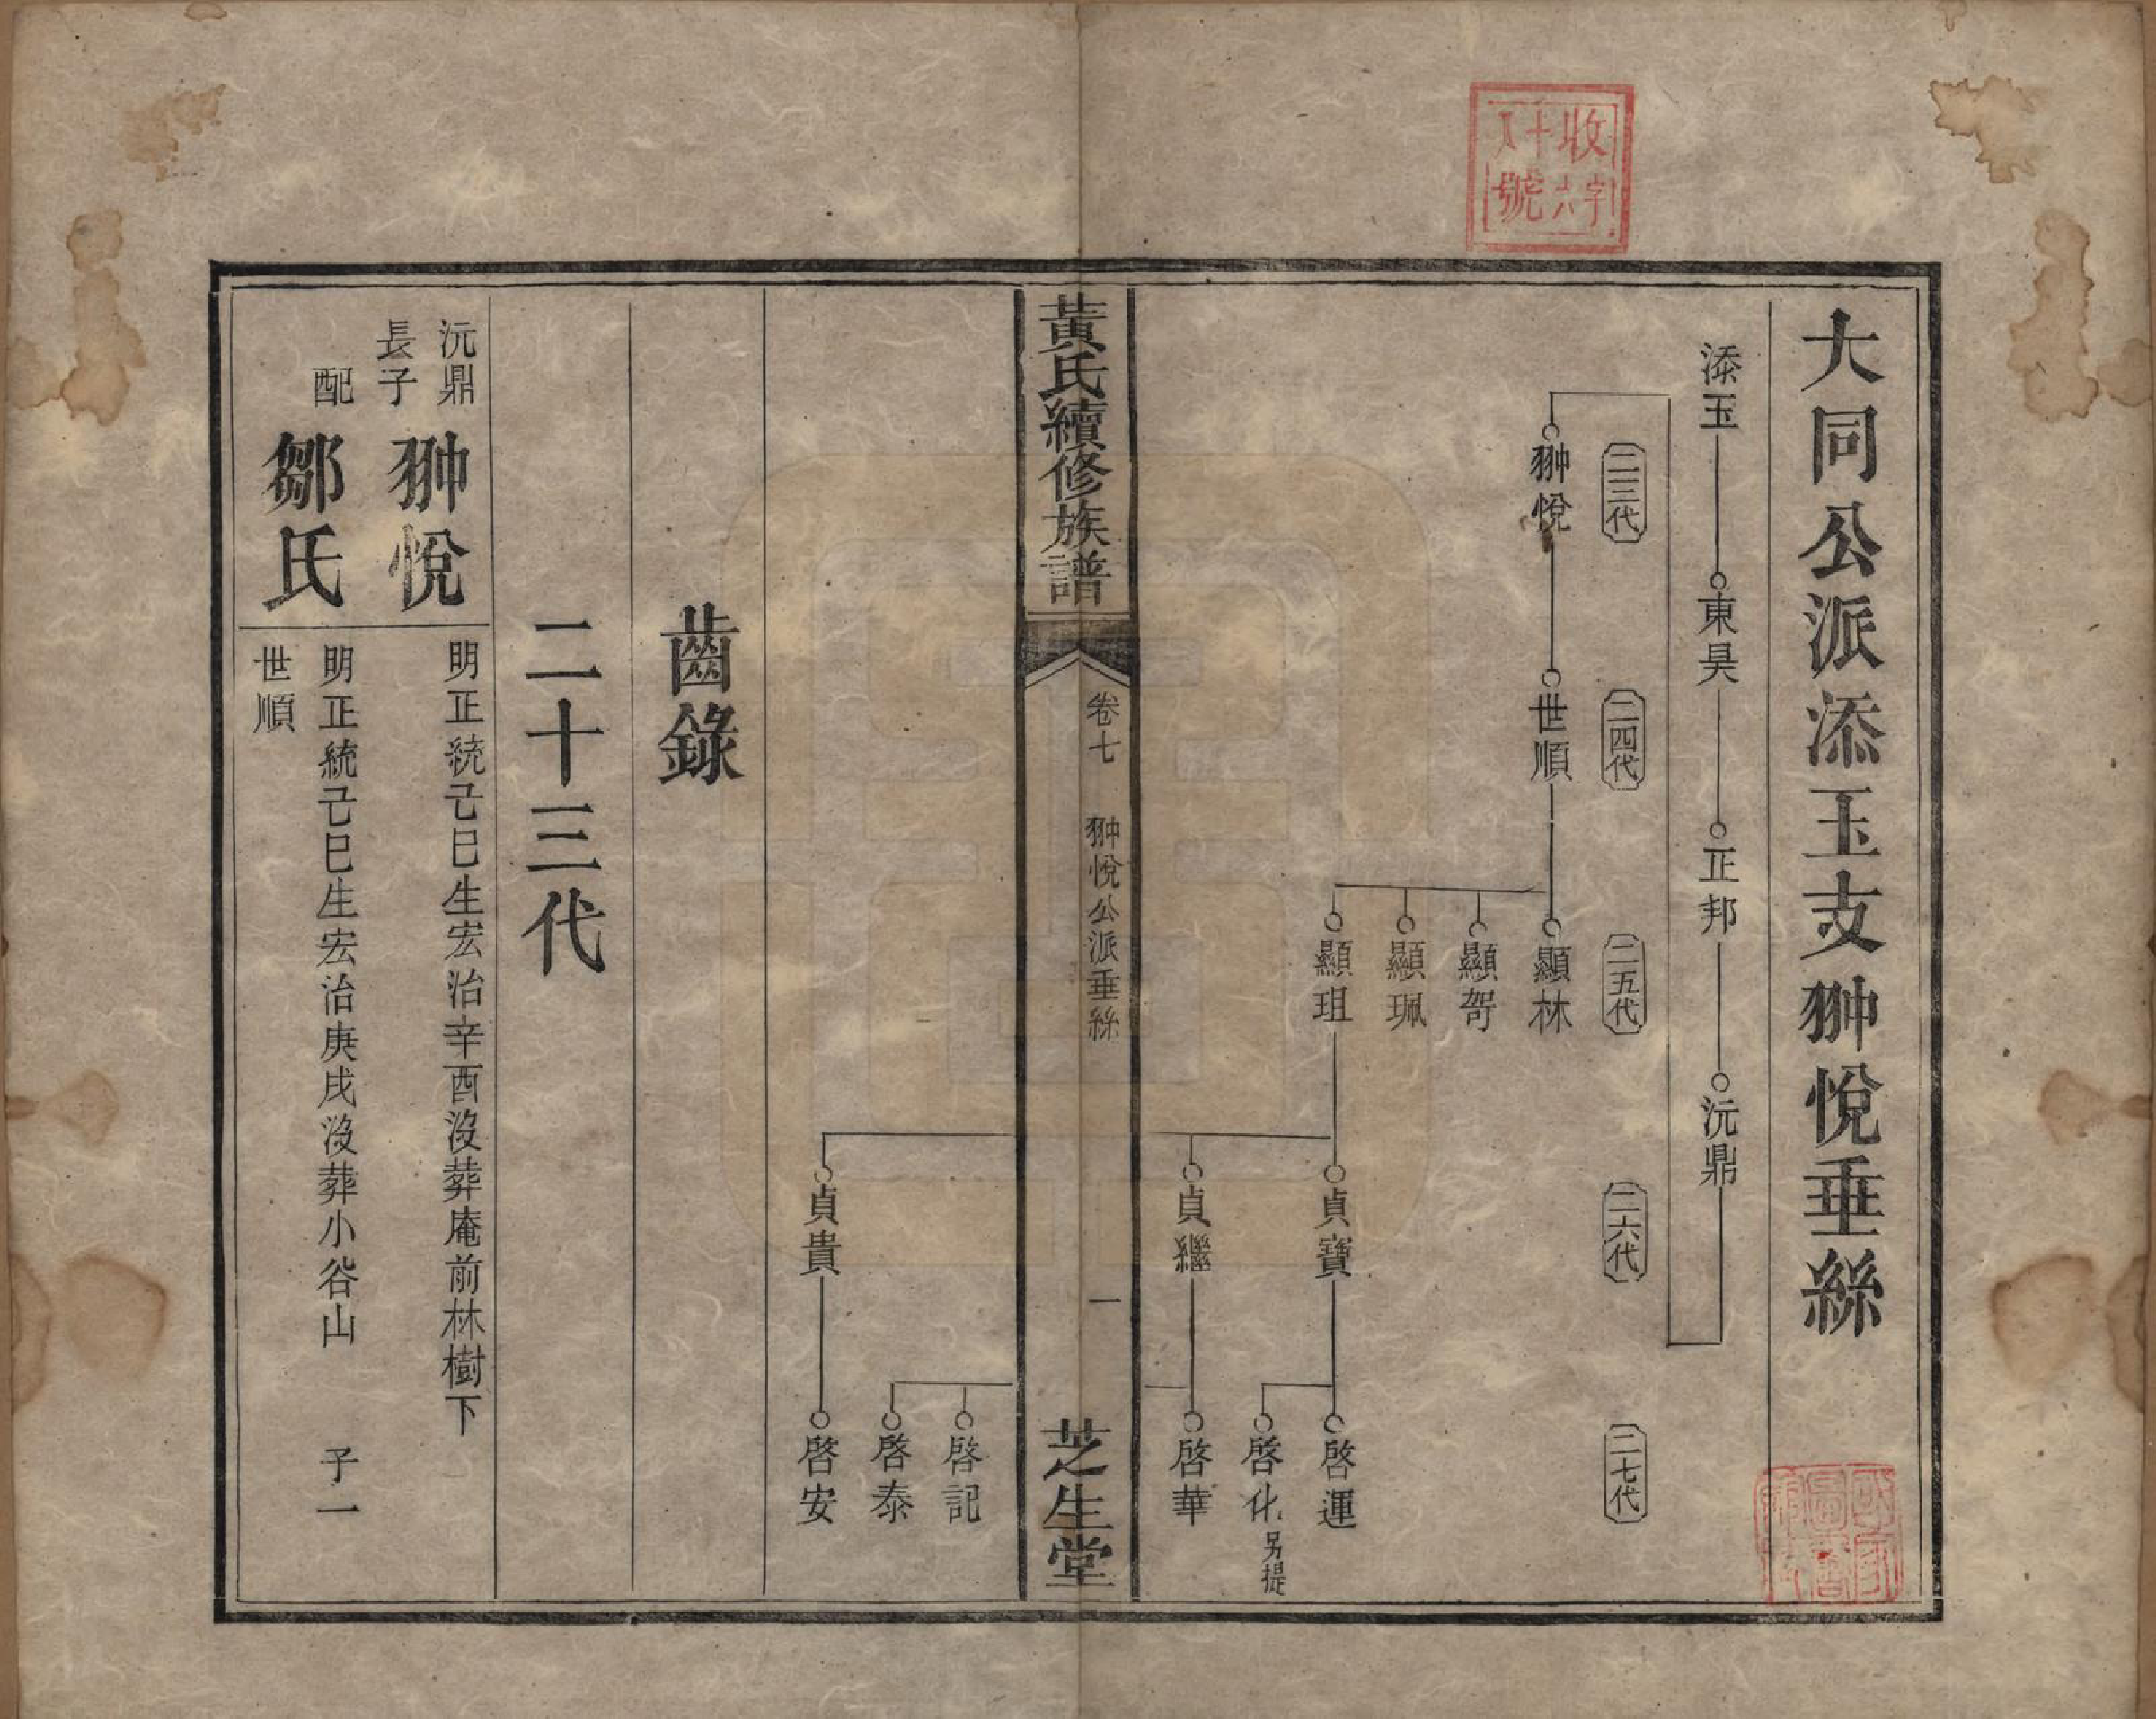 大同公派添玉支翀悅垂絲
添玉 東昊 正邦 沅鼎
二三代 二四代 二五代 二六代 二七代
翀悅 世順 顯林
顯哿
顯珮
顯珇 貞寶 啓運
啓化 另提
貞繼 啓華
黃氏續修族譜 卷七 翀悅公派垂絲 一 芝生堂
啓記
啓泰
貞貴 啓安
齒錄
二十三代
沅鼎長子 翀悅 明正統己巳生宏治辛酉沒葬庵前林樹下
配 鄒氏 明正統己巳生宏治庚戌沒葬小谷山 子一
世順
收字
十六
號